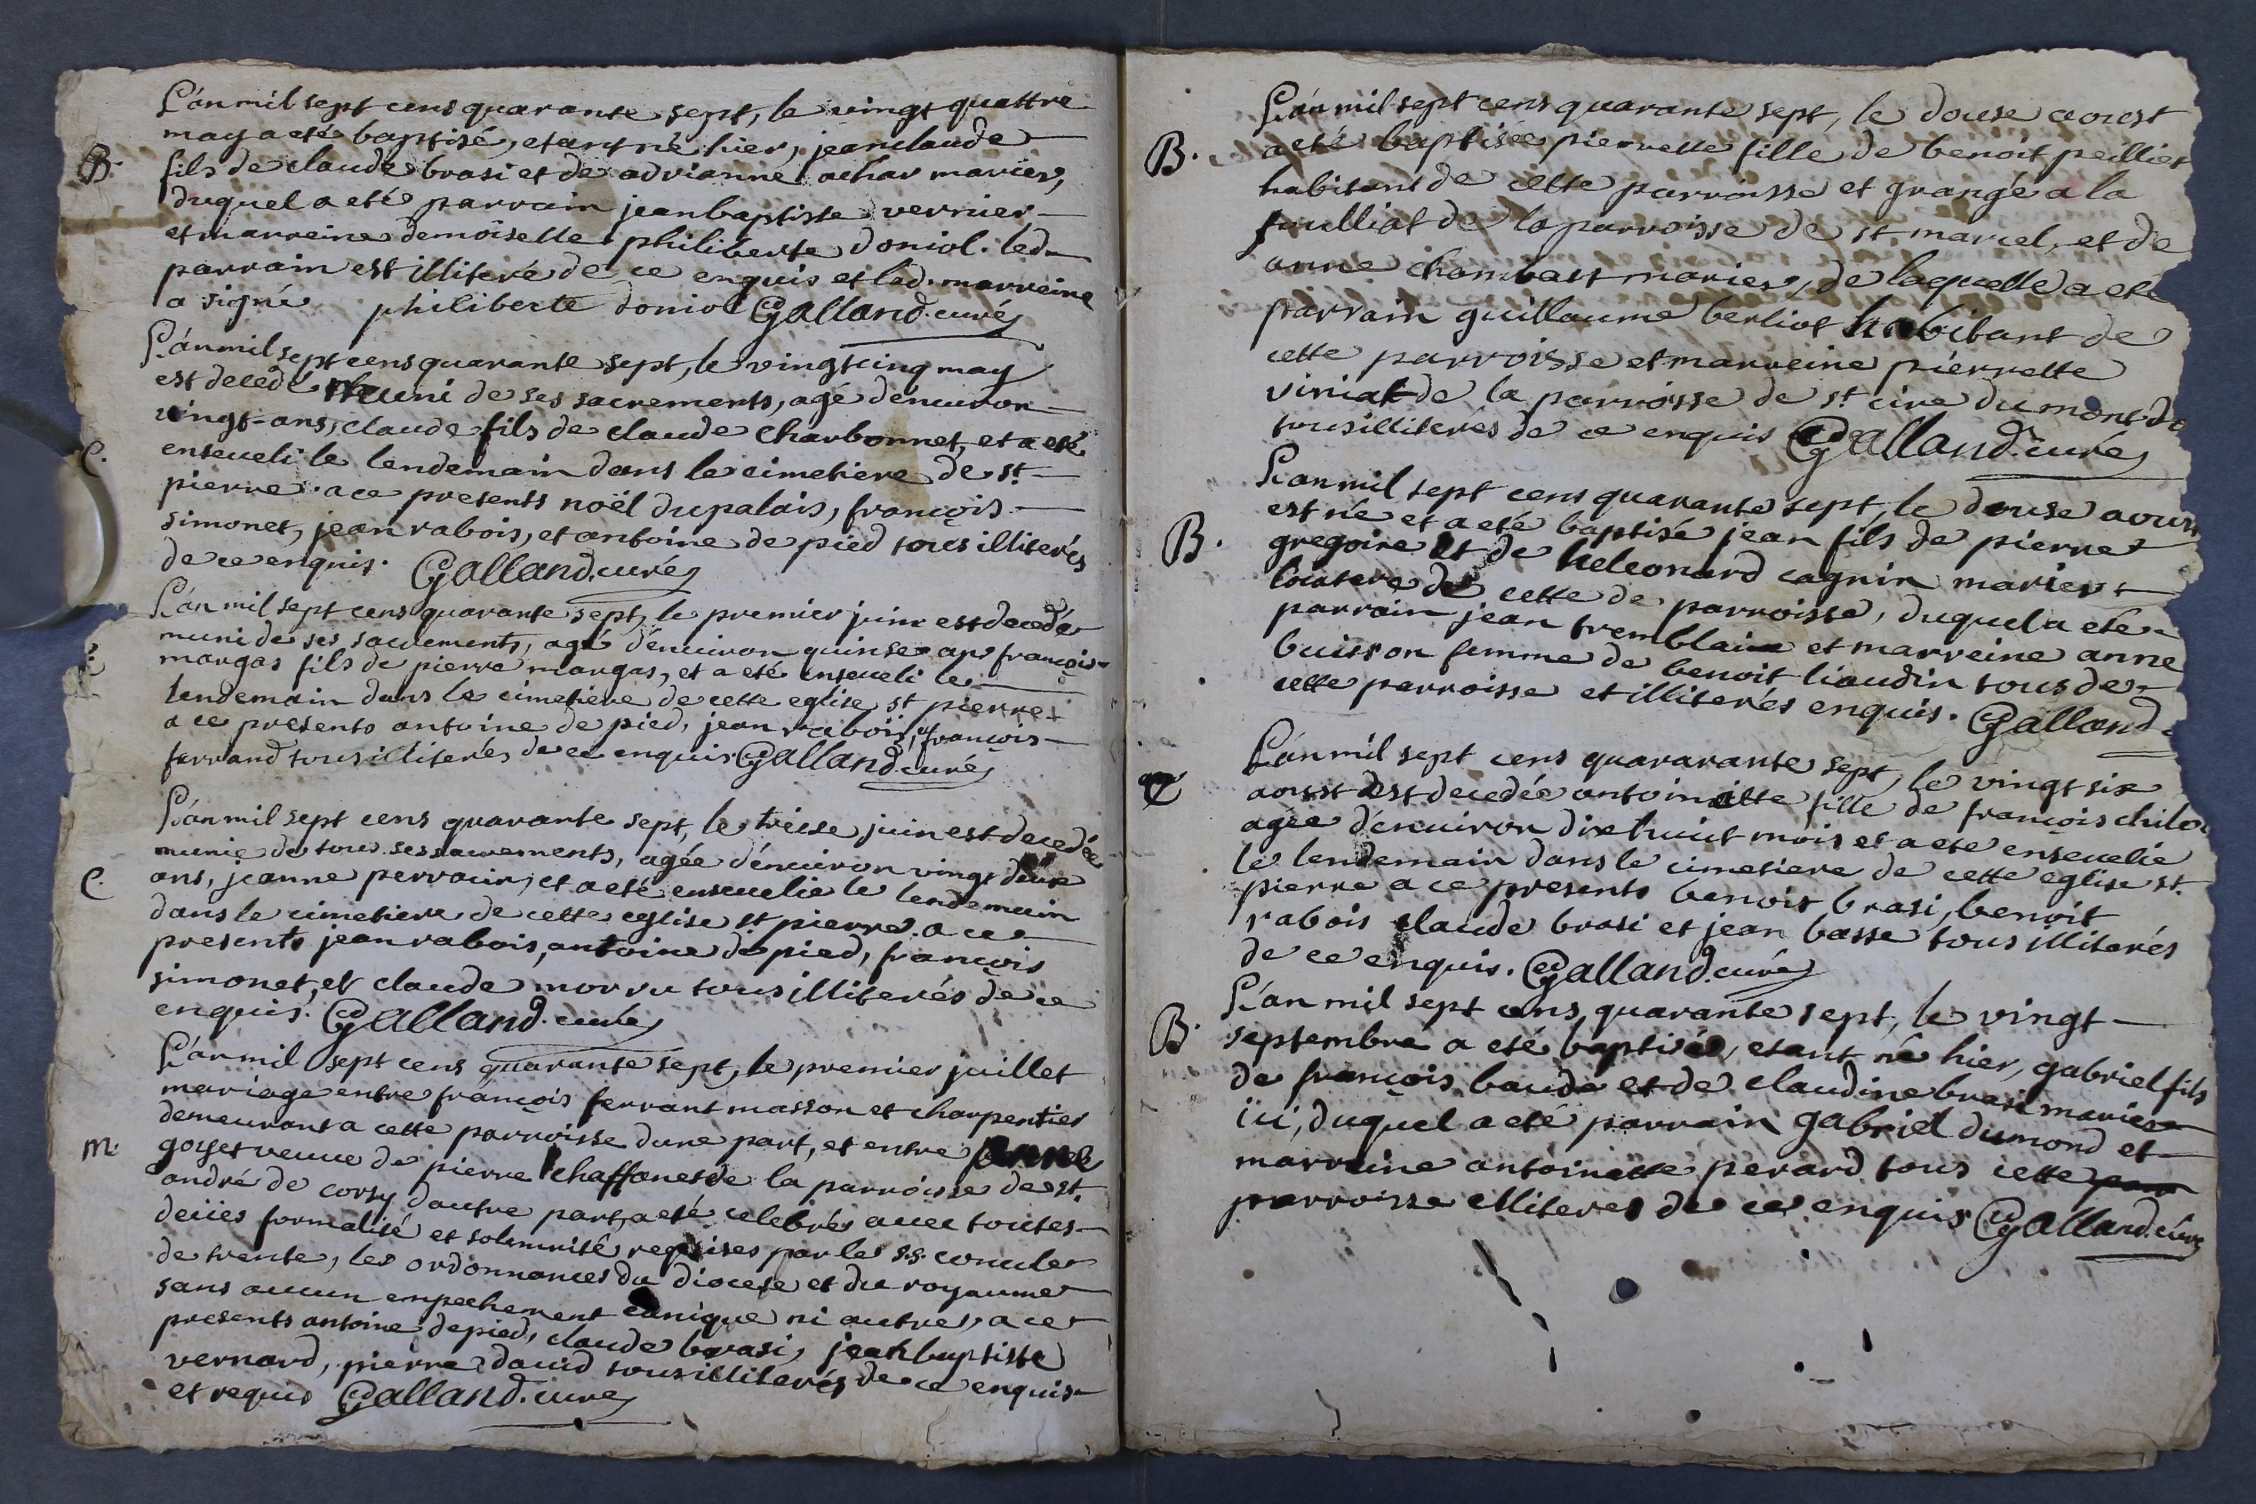 L'an mil sept cens quarante sept, le vingt quattre
may a eté baptisé, etant né hier, jean claude
B. fils de claude brasi et de adrianne achar mariés,
duquel a eté parrain jean baptiste vernier
et marreine demoiselle philiberte doniol. led.
parrain est illiteré de ce enquis et lad. marreine
a signé philiberte doniol Galland. curé
L'an mil sept cens quarante sept, le vingt cinq may
est decedé muni de ses sacrements, agé d'enuiron
vingt-ans, claude fils de claude charbonnet, et a eté
C. enseueli le lendemain dans le cimetiere de st.
pierre. a ce presents noël dupalais, françois
simonet, jean rabois, et antoine de pied tous illiterés
de ce enquis. Galland. curé
L'an mil sept cens quarante sept, le premier juin est decedé
muni de ses sacrements, agé d'enuiron quinse ans françois
margas fils de pierre margas, et a eté enseueli le
lendemain dans le cimetiere de cette eglise st pierre
a ce presents antoine de pied, jean rabois, françois
ferrand tous illiterés de ce enquis Galland. curé
L'an mil sept cens quarante sept, le treise juin est decedée
munie de tous ses sacrements, agée d'enuiron vingt deux
C. ans, jeanne perraur, et a eté enseuelie le lendemain
dans le cimetiere de cette eglise st pierre. a ce
presents jean rabois, antoine de pied, françois
simonet, et claude morru tous illiterés de ce
enquis. Galland. curé
L'an mil sept cens quarante sept, le premier juillet
mariage entre françois ferrant masson et charpentier
demeurant a cette parroisse dune part, et entre
m. goyet veuue de pierre chaffanet de la parroisse de st.
andré de corsy dautre part, a eté celebrés auec toutes
deües formalité et solemnité reqeises par le s.s. concile
de trente, les ordonnances du diocese et du royaume
sans aucun empechement canique ni autre, a ce
presents antoine depied, claude brasi, jean baptiste
vernard, pierre dauid tous illiterés de ce enquis
et requis Galland. curé
L'an mil sept cens quarante sept, le douse aoust
B. a eté baptisée pierrette fille de benoit peilliet
habitant de cette parroisse et grangé a la
foulliat de la parroisse de st marcel, et de
anne chambast mariés, de laquelle a eté
parrain guillaume berliot habitant de
cette parroisse et marreine pierrette
viriat de la parroisse de st. cire du mont do
tous illiterés de ce enquis Galland. curé
L'an mil sept cens quarante sept, le douse aoust
est né et a eté baptisé jean fils de pierre
B. gregoire et de heleonard cagnin mariés
locatere de cette de parroisse, duquel a eté
parrain jean tremblai et marreine anne
buisson femme de benoit liaudin tous de
cette parroisse et illiterés enquis. Galland.
L'an mil sept cens quararante sept, le vingt six
aoust est decedée antoinette fille de françois chile
agée d'enuiron dixhuict mois et a eté enseuelie
le lendemain dans le cimetiere de cette eglise st.
pierre a ce presents benoit brasi, benoit
rabois claude brasi et jean basse tous illiterés
de ce enquis. Galland. curé
L'an mil sept cens quarante sept, le vingt
B. septembre a eté baptisé, etant né hier, gabriel fils
de françois baude et de claudine brasi mariés
ici, duquel a eté parrain gabriel dumond et
marreine antoinette perard tous cette
parroisse illiterés de ce enquis Galland. curé